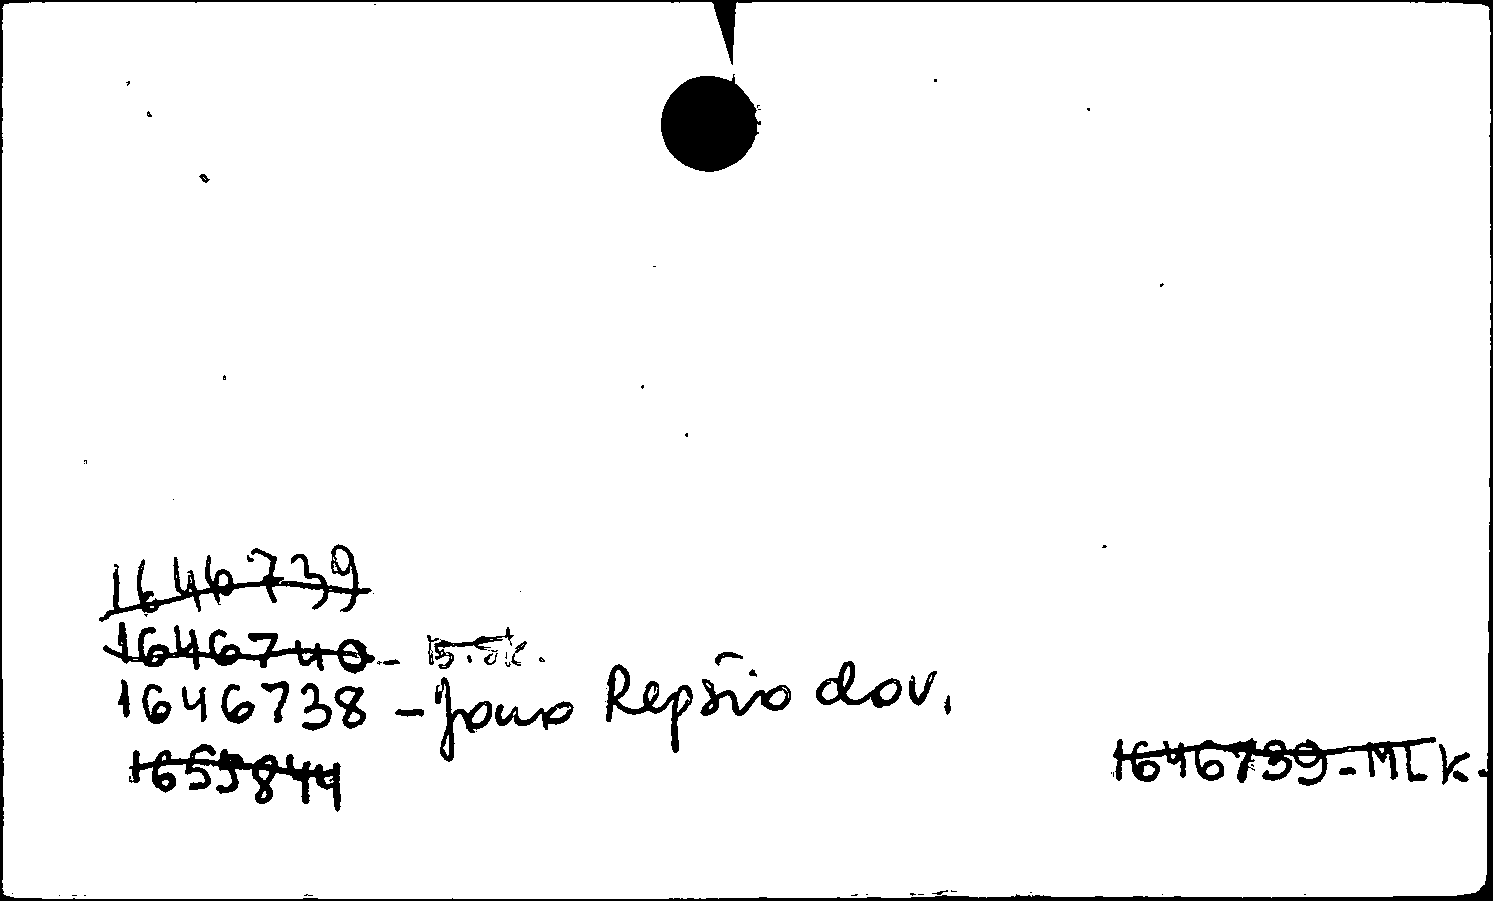 1646739
1646740 - B.sk.
1646738 - Jono Repšio dov.
1655844
1646739 - MLK.